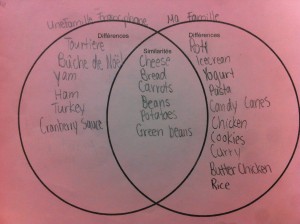 Une Famille Francophone
Ma Famille
Différences
Tourtière
Bûche de Noël
Yam
Ham
Turkey
Cranberry Sauce
Similarités
Cheese
Bread
Carrots
Beans
Potatoes
Green beans
Différences
Icecream
Yogurt
Pasta
Candy Canes
Chicken
Cookies
Curry
Butter Chicken
Rice